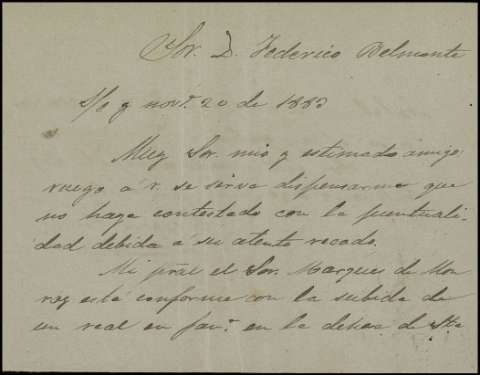 Sor. D. Federico Belmonte
S/c y novre. 20 de 1883
Muy Sor. mio y estimado amigo:
ruego a v. se sirva dispensarme que
no haya contestado con la puntuali-
dad debida á su atento recado.
Mi pral el Sor. Marques de Mon
roy está conforme con la subida de
un real en fana. en la dehesa de Sta